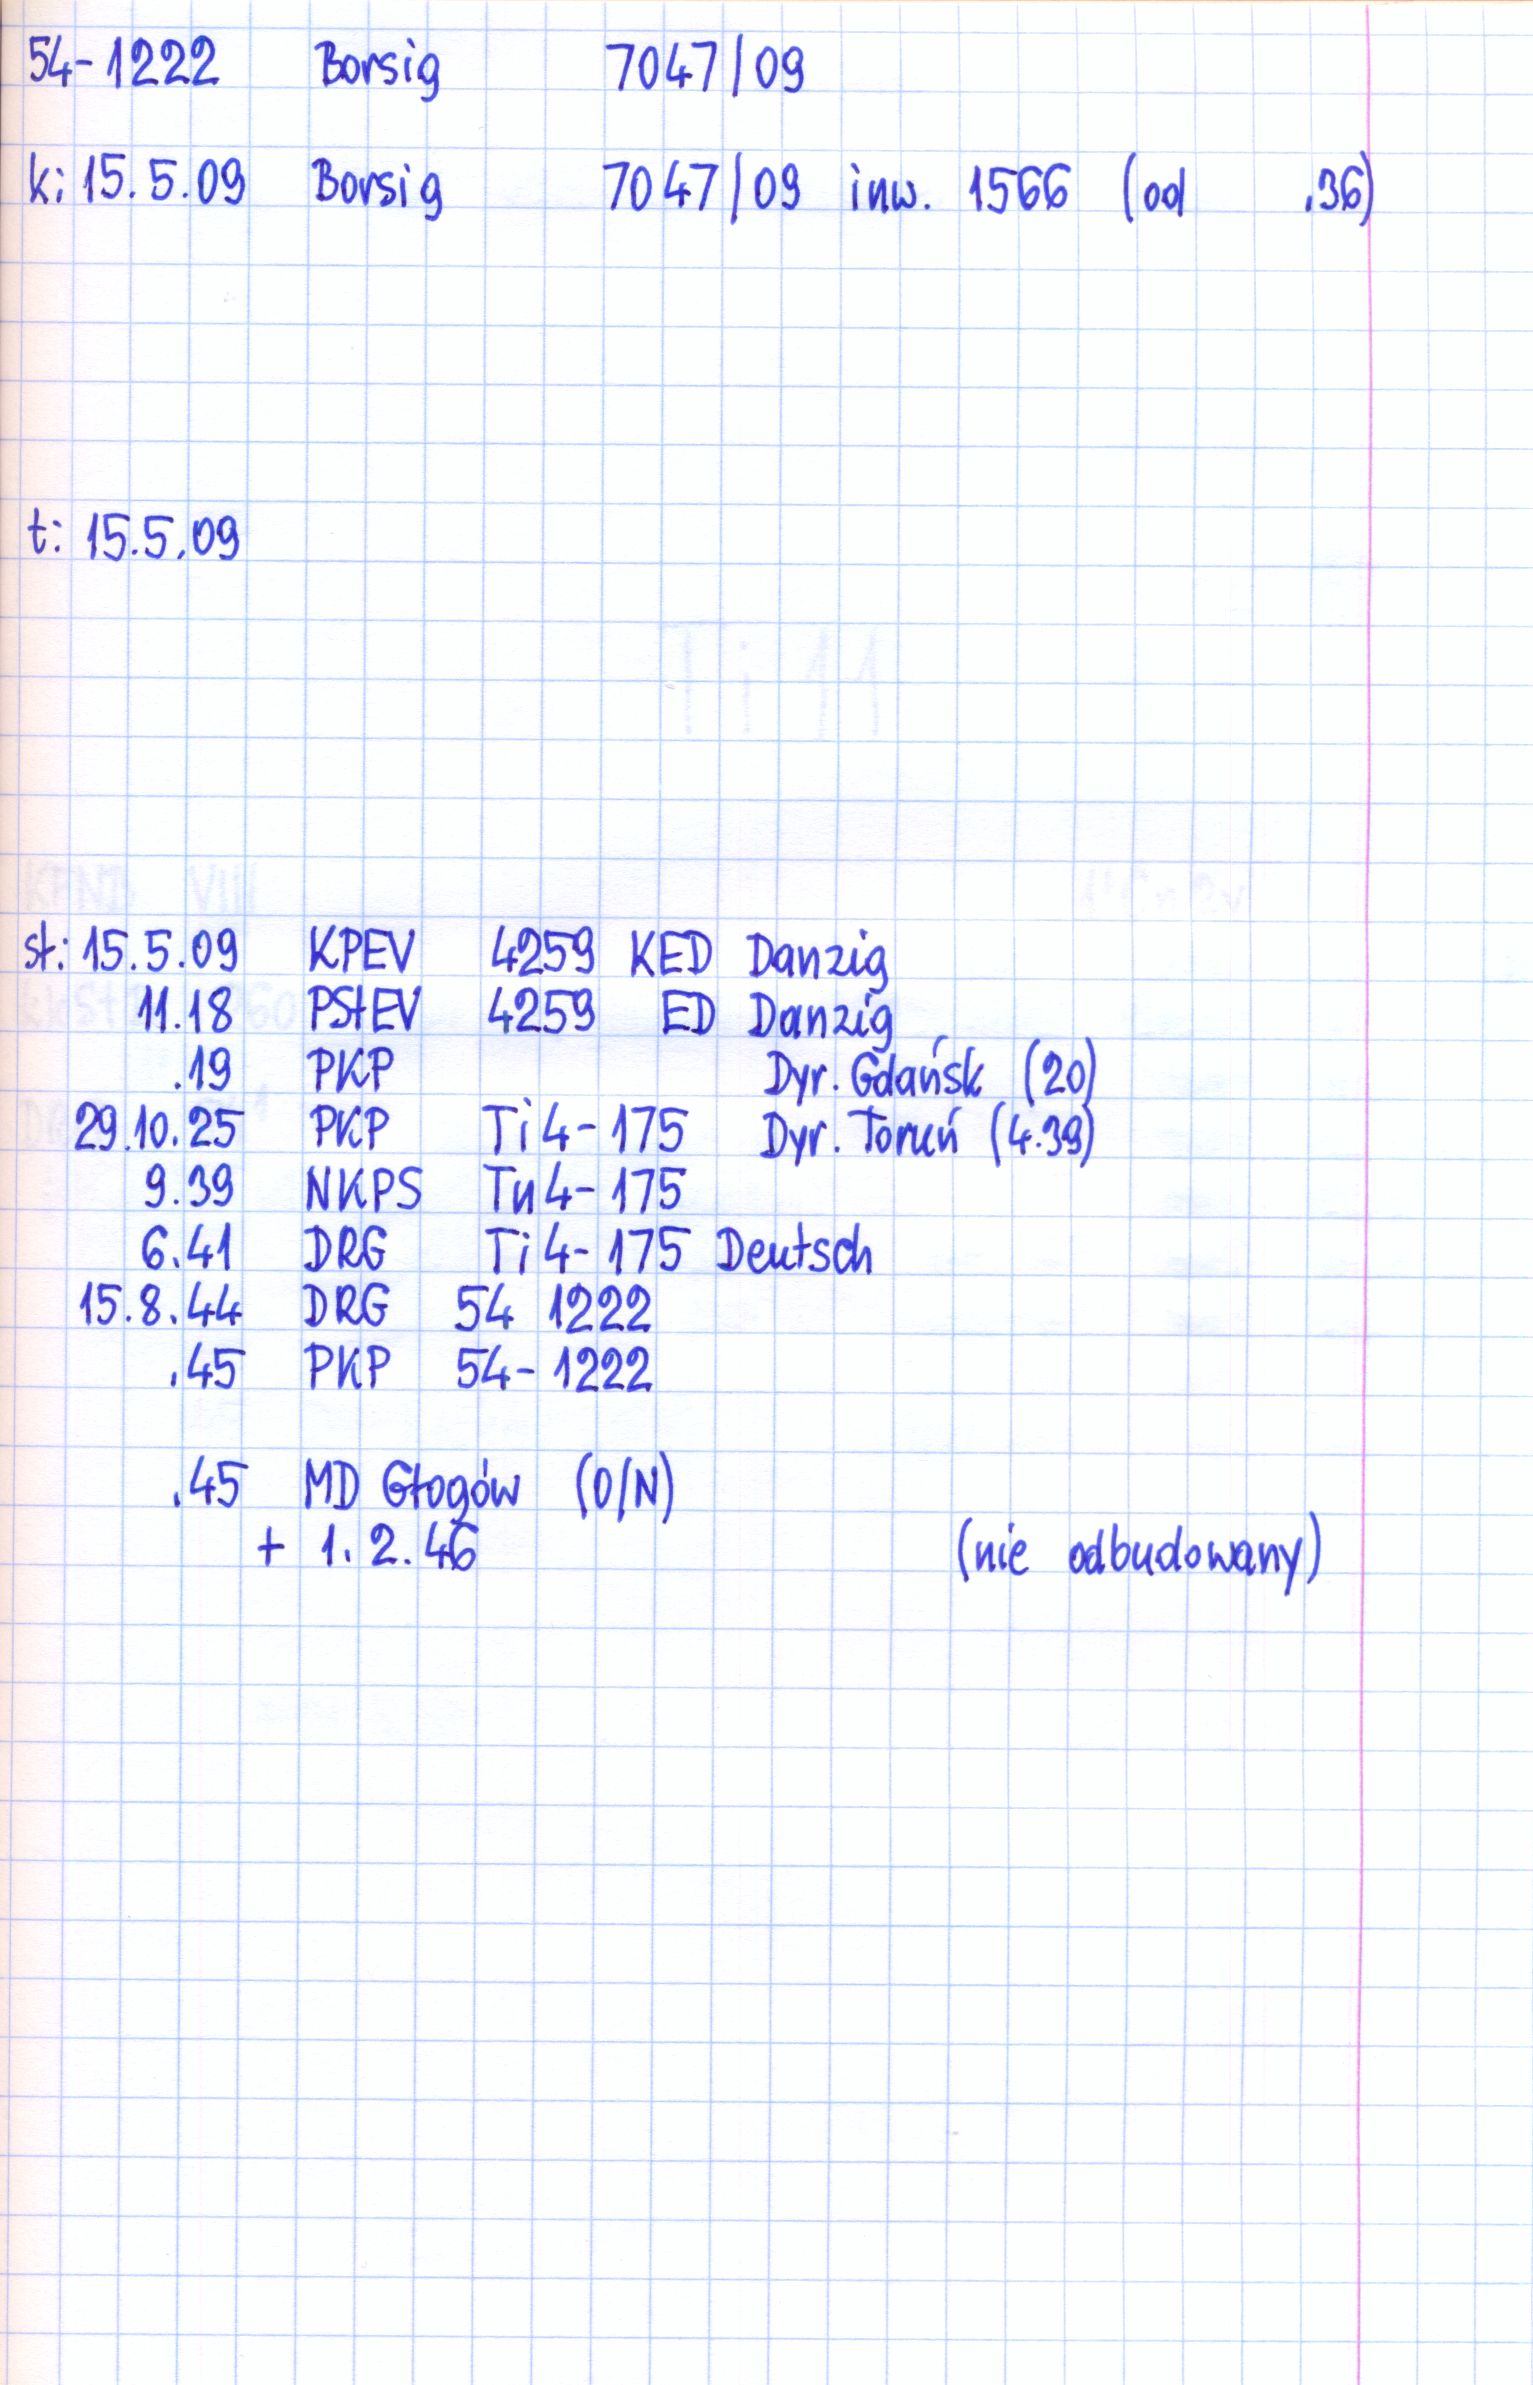 54-1222 Borsig 7047/09
k: 15.5.09 Borsig 7047/09 inw. 1566 (od .36)
t: 15.5.09
st: 15.5.09 KPEV 4259 KED Danzig
11.18 PStEV 4259 ED Danzig
.19 PKP Dyr. Gdańsk (20)
29.10.25 PKP Ti4-175 Dyr. Toruń (4.39)
9.39 NKPS Tu4-175
6.41 DRG Ti4-175 Deutsch
15.8.44 DRG 54 1222
.45 PKP 54-1222
.45 MD Głogów (O/N)
+ 1.2.46 (nie odbudowany)